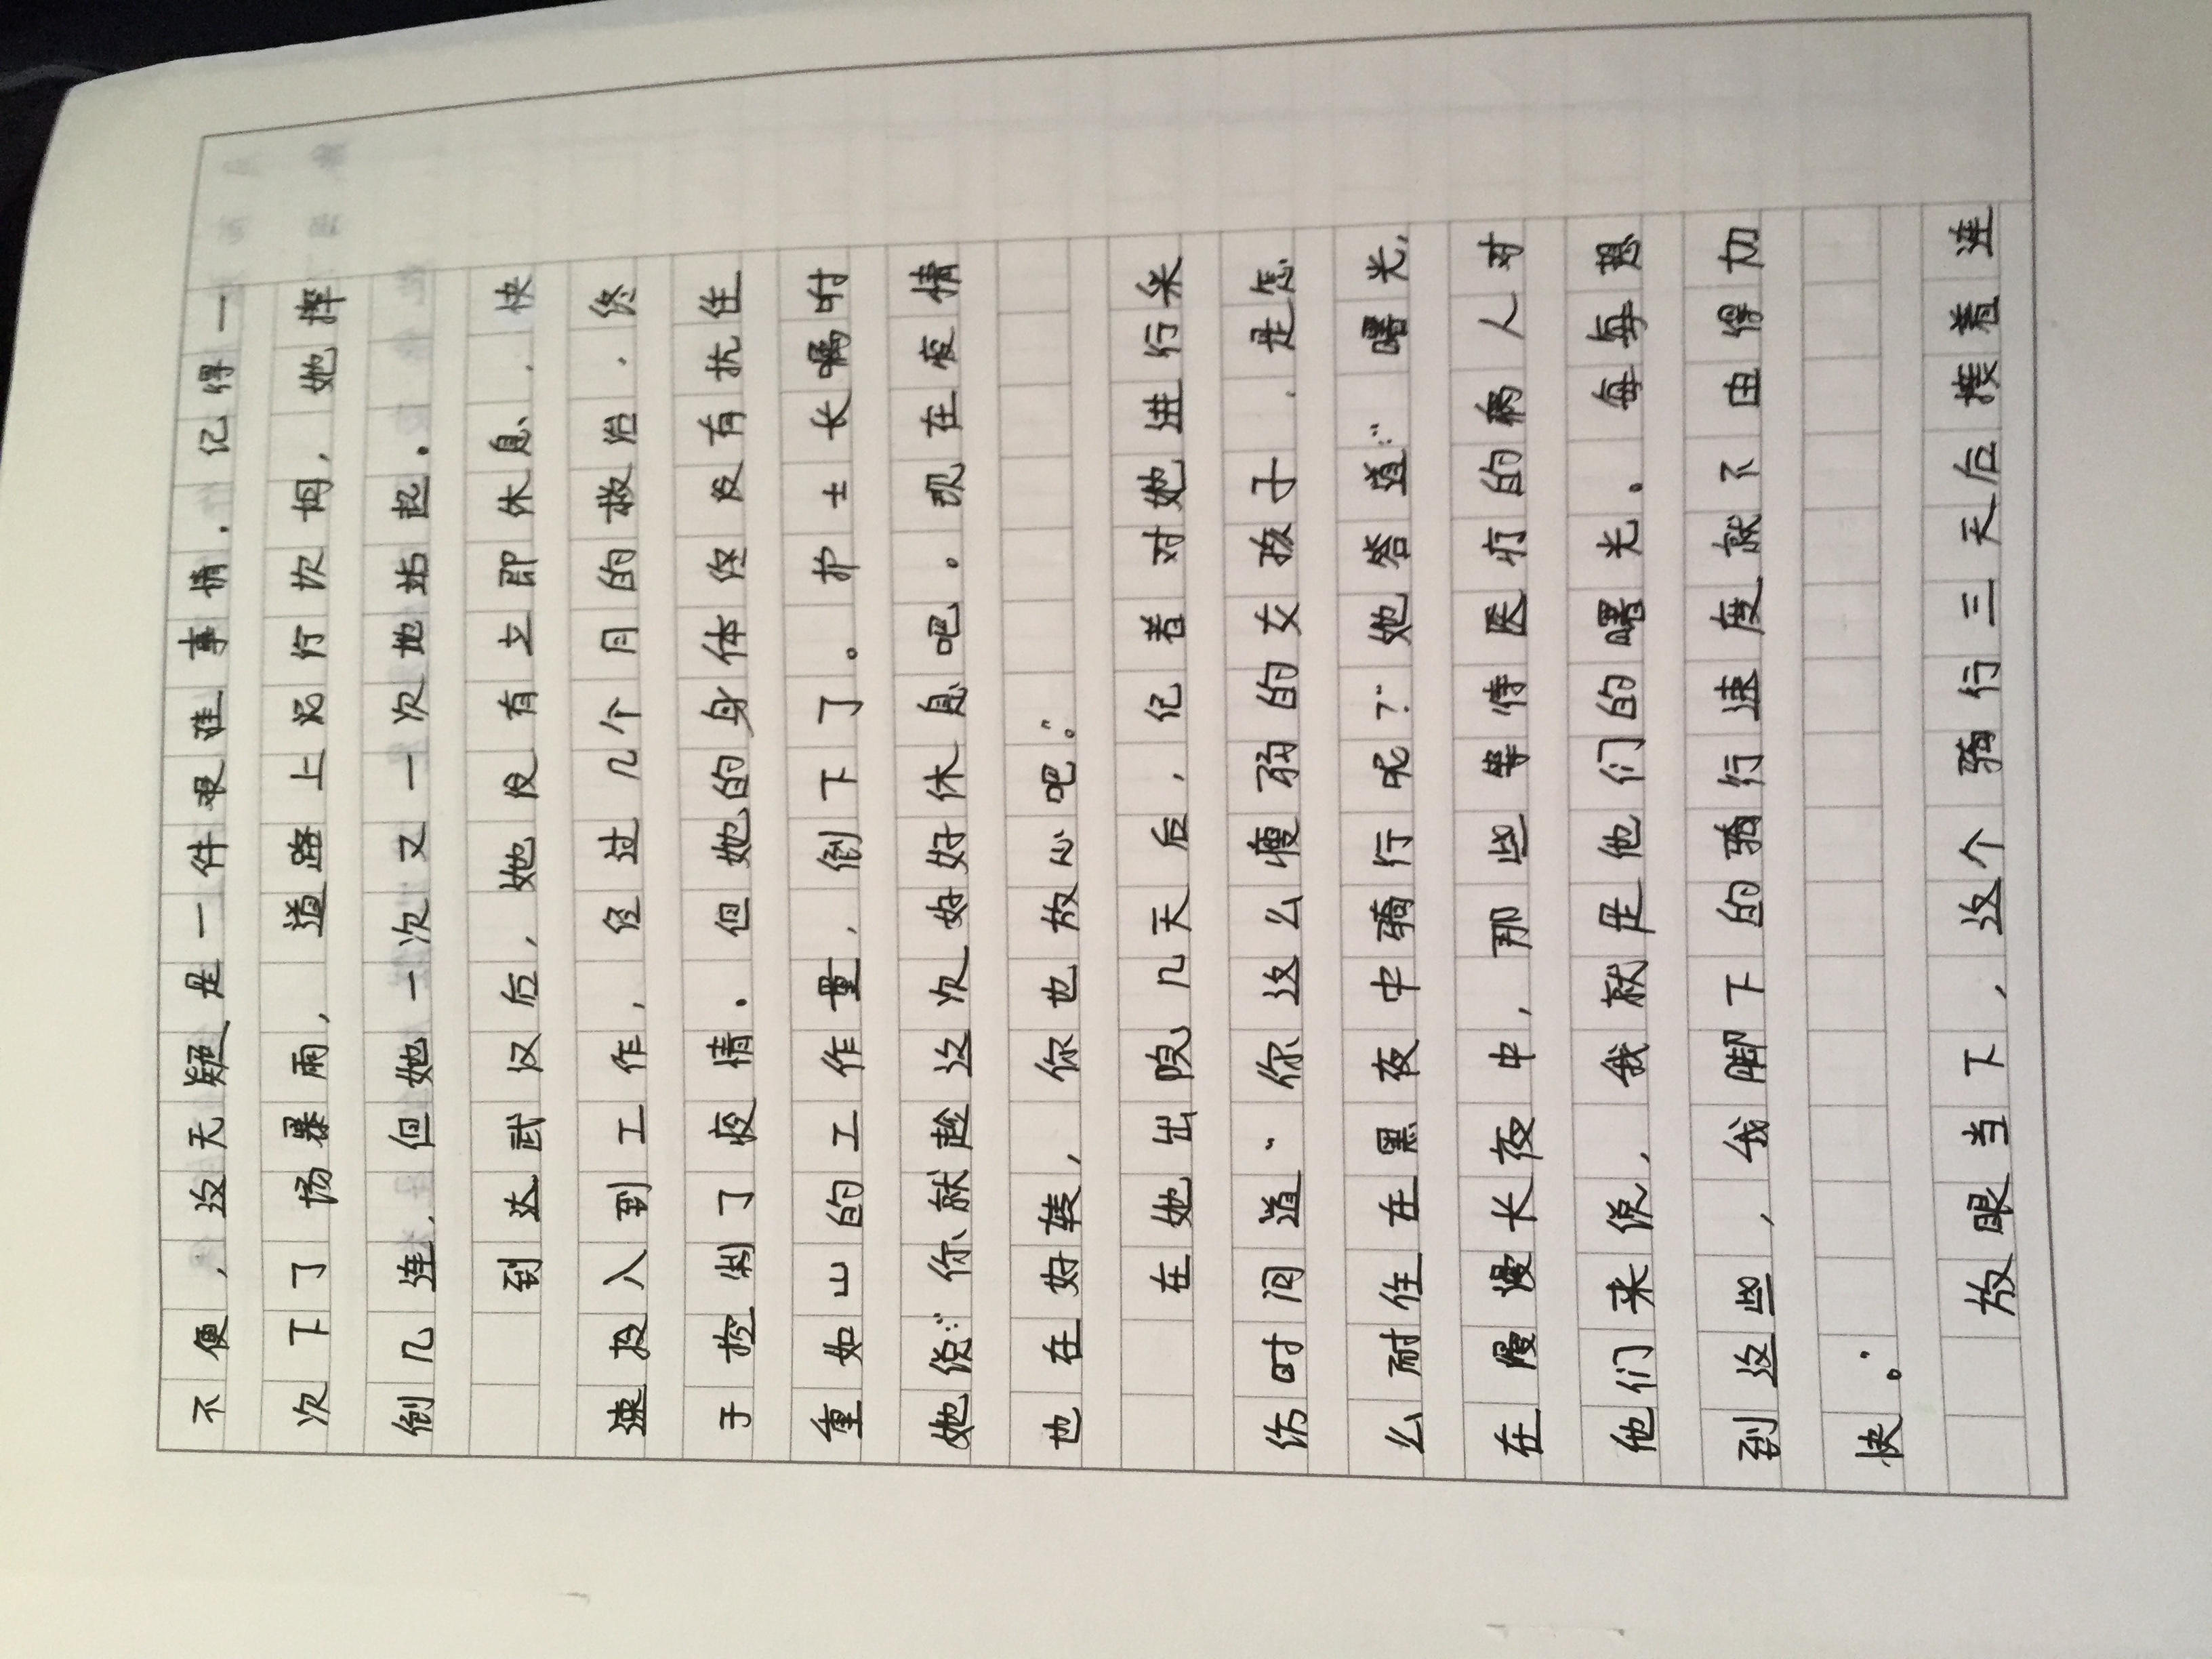 不便，这无疑是一件艰难事情．记得一
次下了场暴雨，道路上泥泞坎坷，她摔
倒几连，但她一次又一次地站起．
到达武汉后，她没有立即休息．快
速投入到工作，经过几个月的救治．终
于控制了疫情．但她的身体终没有扛住
重如山的工作量，倒下了。护士长嘱咐
她说：“你就趁这次好好休息吧。现在疫情
也在好转，你也放心吧。”
在她出院几天后，记者对她进行采
访时问道：“你这么瘦弱的女孩子．是怎
么耐住在黑夜中骑行呢？”她答道：“曙光，
在漫漫长夜中，那些等待医疗的病人对
他们来说，我就是他们的曙光。每每想
到这些，我脚下的骑行速度就不由得加
快。”
放眼当下，这个骑行三天后接着连